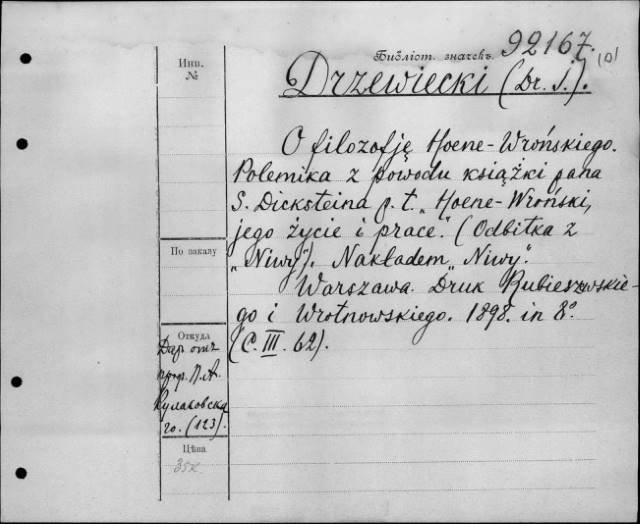 Библіот. значекъ 92167.
(a)
Инв.
№
Drzewiecki (Dr. J.).
O filozofję Hoene-Wrońskiego.
Polemika z powodu książki pana
S. Dicksteina p.t. „Hoene-Wroński,
jego życie i prace". (Odbitka z
„Niwy"). Nakładem „Niwy".
Warszawa. Druk Rubieszewskie-
go i Wrotnowskiego. 1898. in 8°.
(C. III. 62).
По заказу
Откуда
Дар отъ
проф. П.А.
Кулаковска
го. (123).
Цѣна
35к